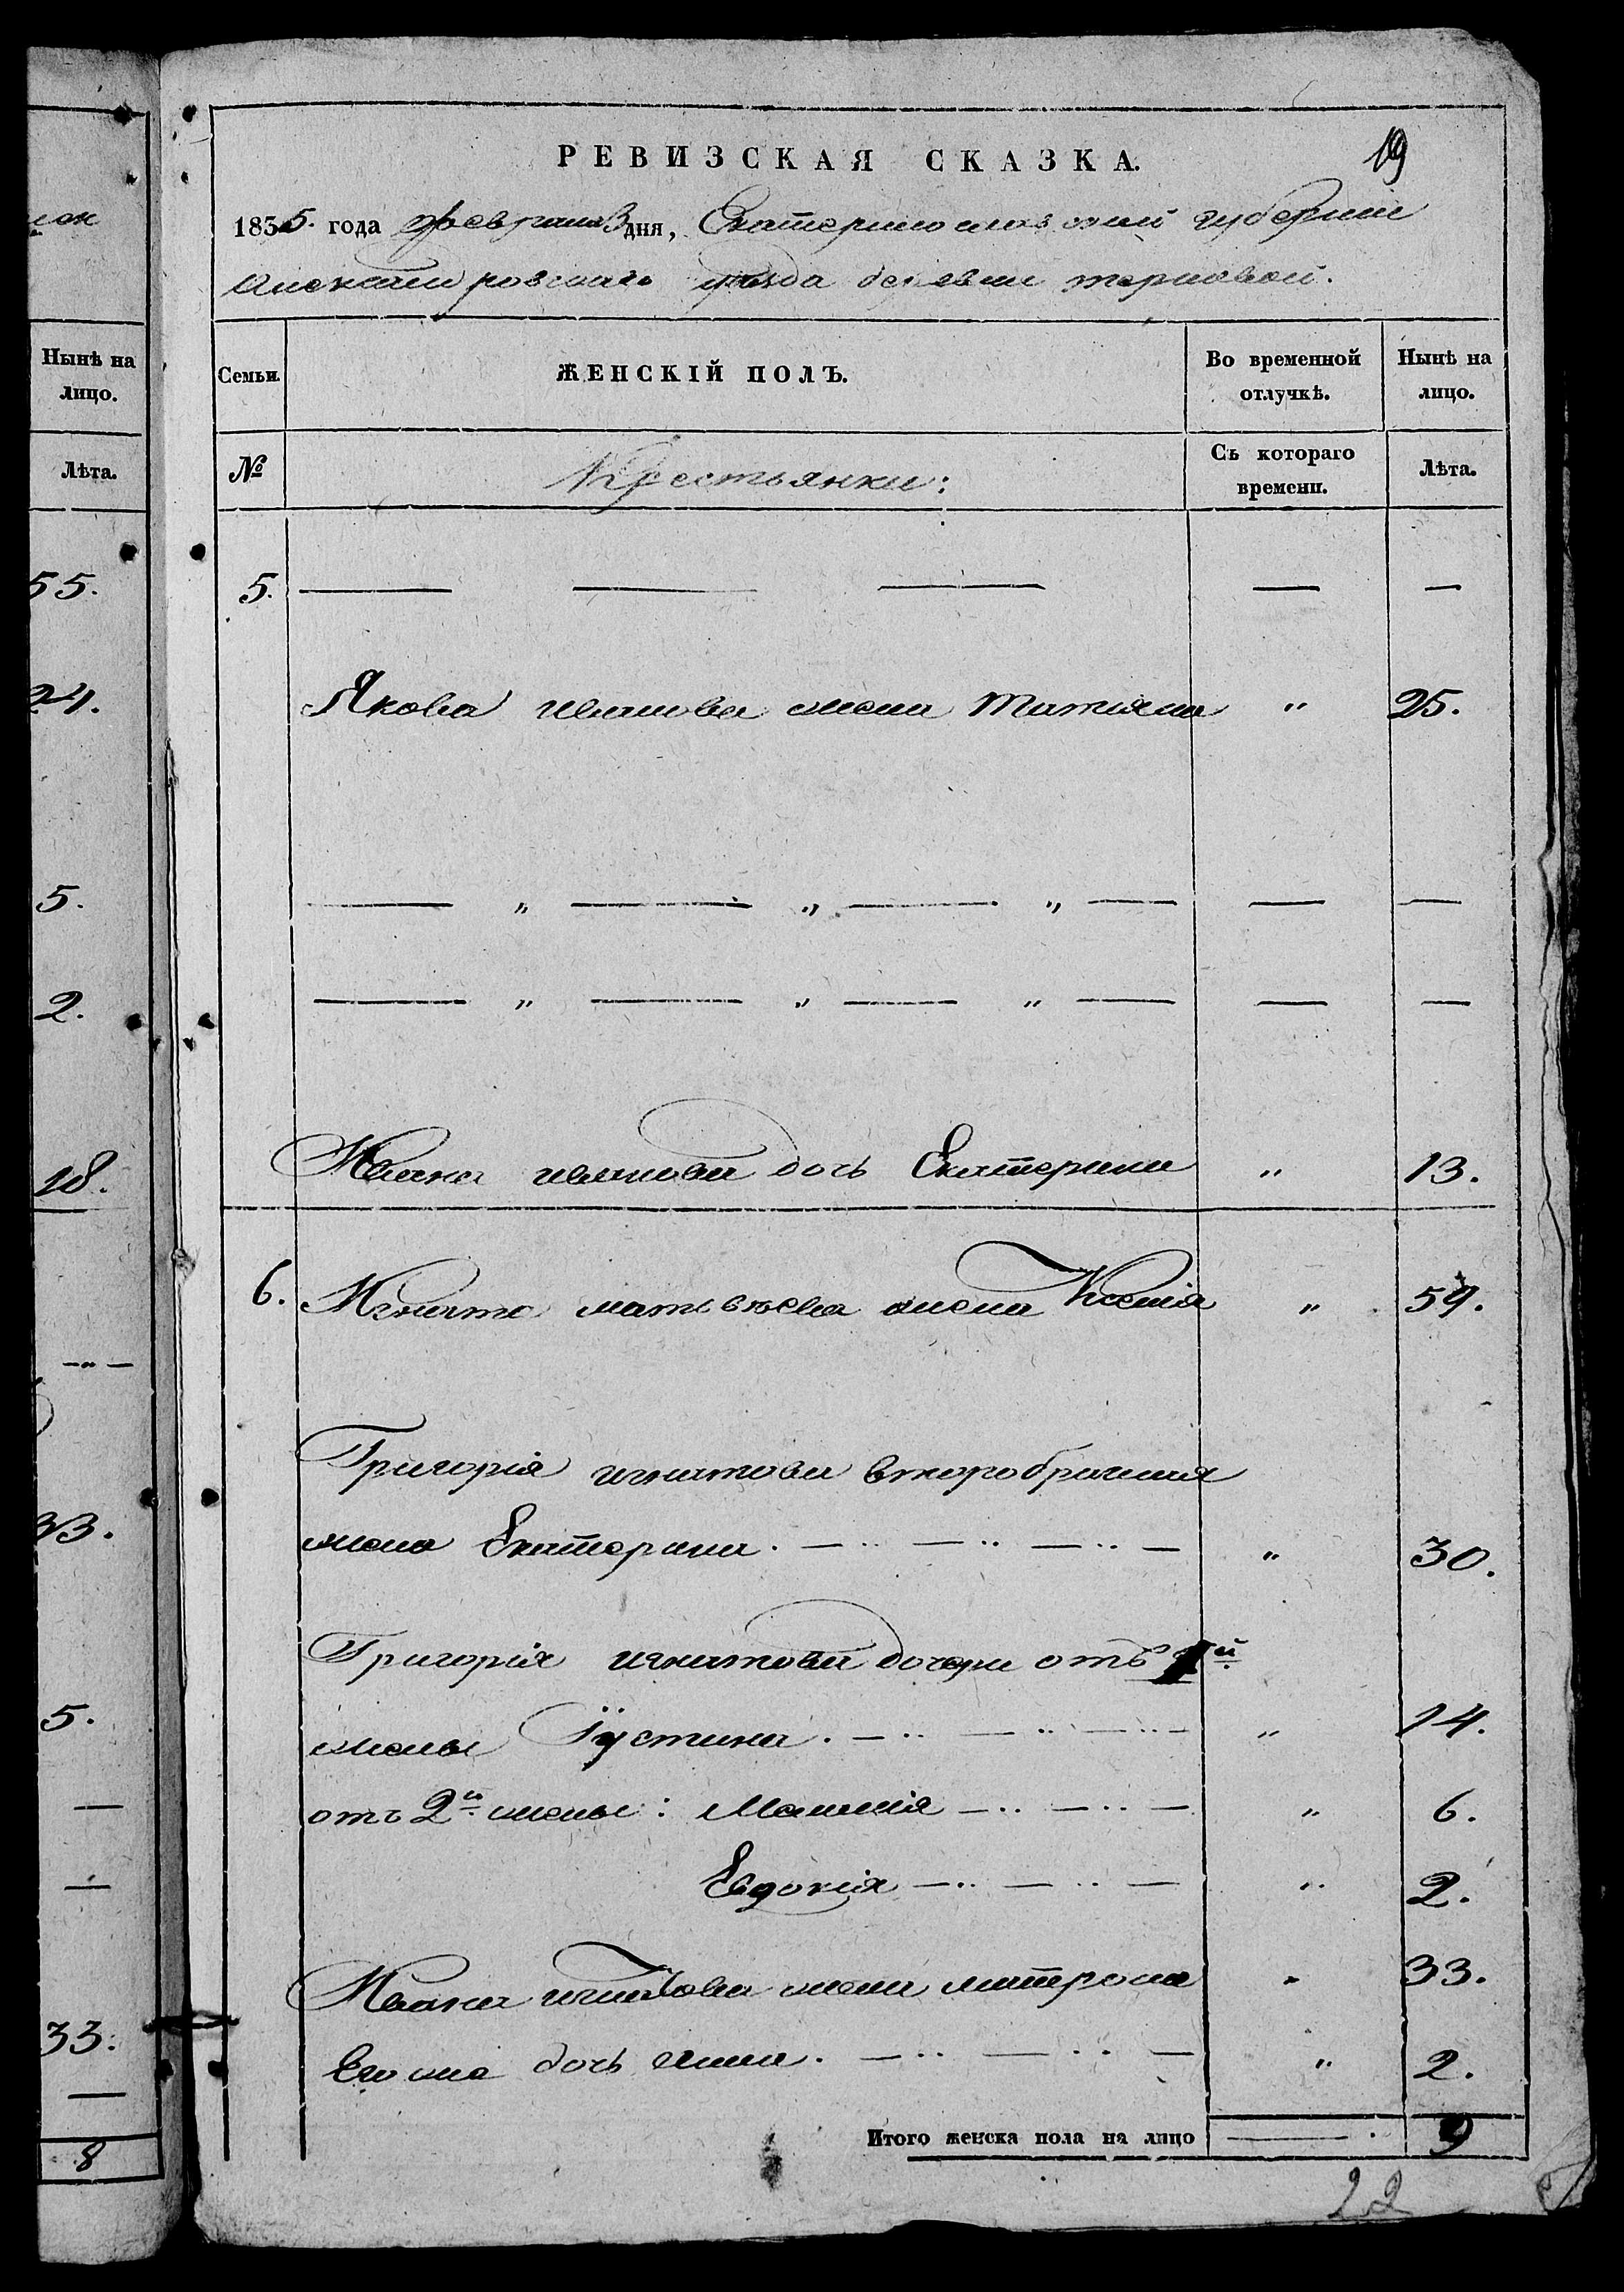 лок
Нынѣ на
лицо.
Лѣта.
55.
24.
5.
2.
18.
— „ —
33.
5.
—
—
33.
—
8
19
РЕВИЗСКАЯ СКАЗКА.
1835. года февраля 3 дня, Екатеринославской губернии
Александровскаго уѣзда деревни терновой.
Семьи.
ЖЕНСКІЙ ПОЛЪ.
Во временной
отлучкѣ.
Нынѣ на
лицо.
№
Крестьянки:
Съ котораго
времени.
Лѣта.
5. — — — — —
Якова иванова жена татьяна „ 25.
— „ — „ — „ — — —
— „ — „ — „ — — —
Ивана иванова дочь Екатерина „ 13.
6. Игната матьвѣева жена Ксенія „ 59.
Григорія игнатова второбрачная
жена Екатерина. — „ — „ — „ — „ 30.
Григорія игнатова дочери отъ 1й
жены Іустина. — „ — „ — „ — „ 14.
отъ 2й жены: Меланія — „ — „ — „ 6.
Евдокія — „ — „ — „ 2.
Ивана игнатова жена матрона „ 33.
Его же дочь анна. — „ — „ — „ 2.
Итого женска пола на лицо — . 9
22